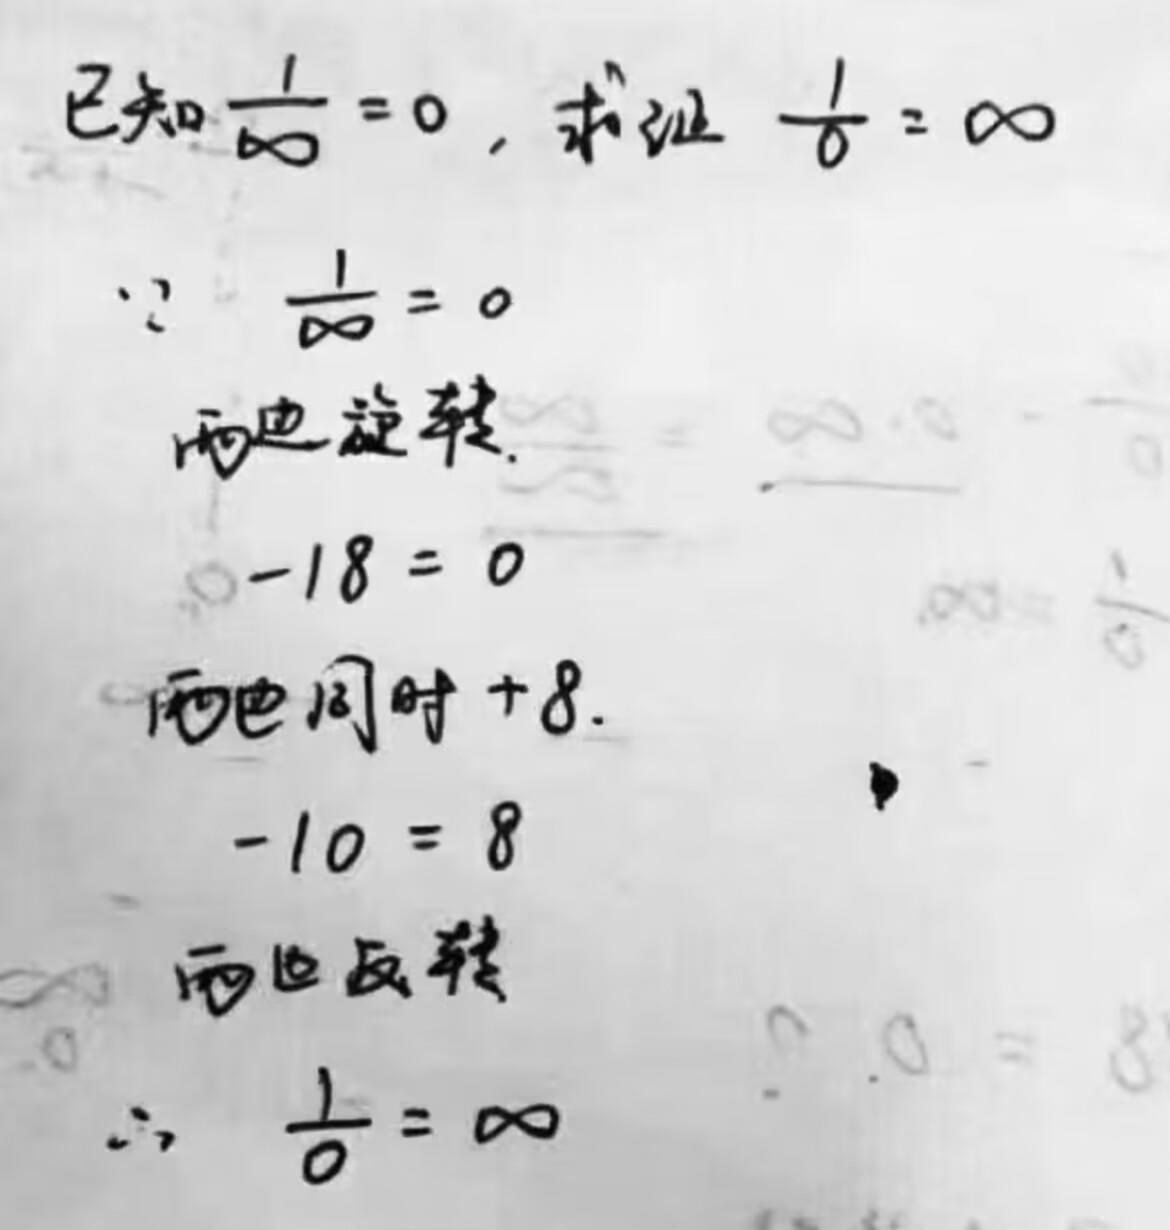 已知 1/∞ = 0, 求证 1/0 = ∞
∵ 1/∞ = 0
两边旋转.
-18 = 0
两边同时 +8.
-10 = 8
两边反转
∴ 1/0 = ∞